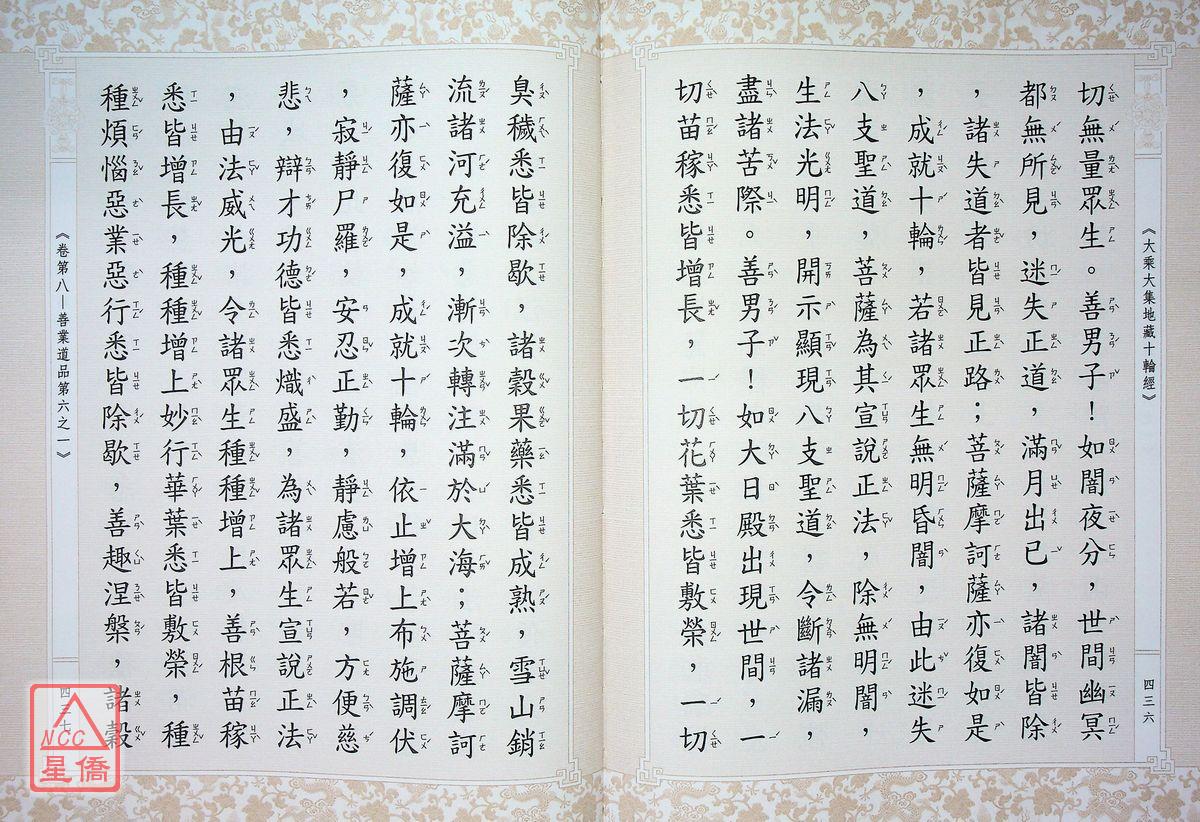 《大乘大集地藏十輪經》
四三六
切無量眾生。善男子！如闇夜分，世間幽冥
都無所見，迷失正道，滿月出已，諸闇皆除
，諸失道者皆見正路；菩薩摩訶薩亦復如是
，成就十輪，若諸眾生無明昏闇，由此迷失
八支聖道，菩薩為其宣說正法，除無明闇，
生法光明，開示顯現八支聖道，令斷諸漏，
盡諸苦際。善男子！如大日殿出現世間，一
切苗稼悉皆增長，一切花葉悉皆敷榮，一切
臭穢悉皆除歇，諸穀果藥悉皆成熟，雪山銷
流諸河充溢，漸次轉注滿於大海；菩薩摩訶
薩亦復如是，成就十輪，依止增上布施調伏
，寂靜尸羅，安忍正勤，靜慮般若，方便慈
悲，辯才功德皆悉熾盛，為諸眾生宣說正法
，由法威光，令諸眾生種種增上，善根苗稼
悉皆增長，種種增上妙行華葉悉皆敷榮，種
種煩惱惡業惡行悉皆除歇，善趣涅槃，諸穀
《卷第八—善業道品第六之一》
四三七
NCC
星僑